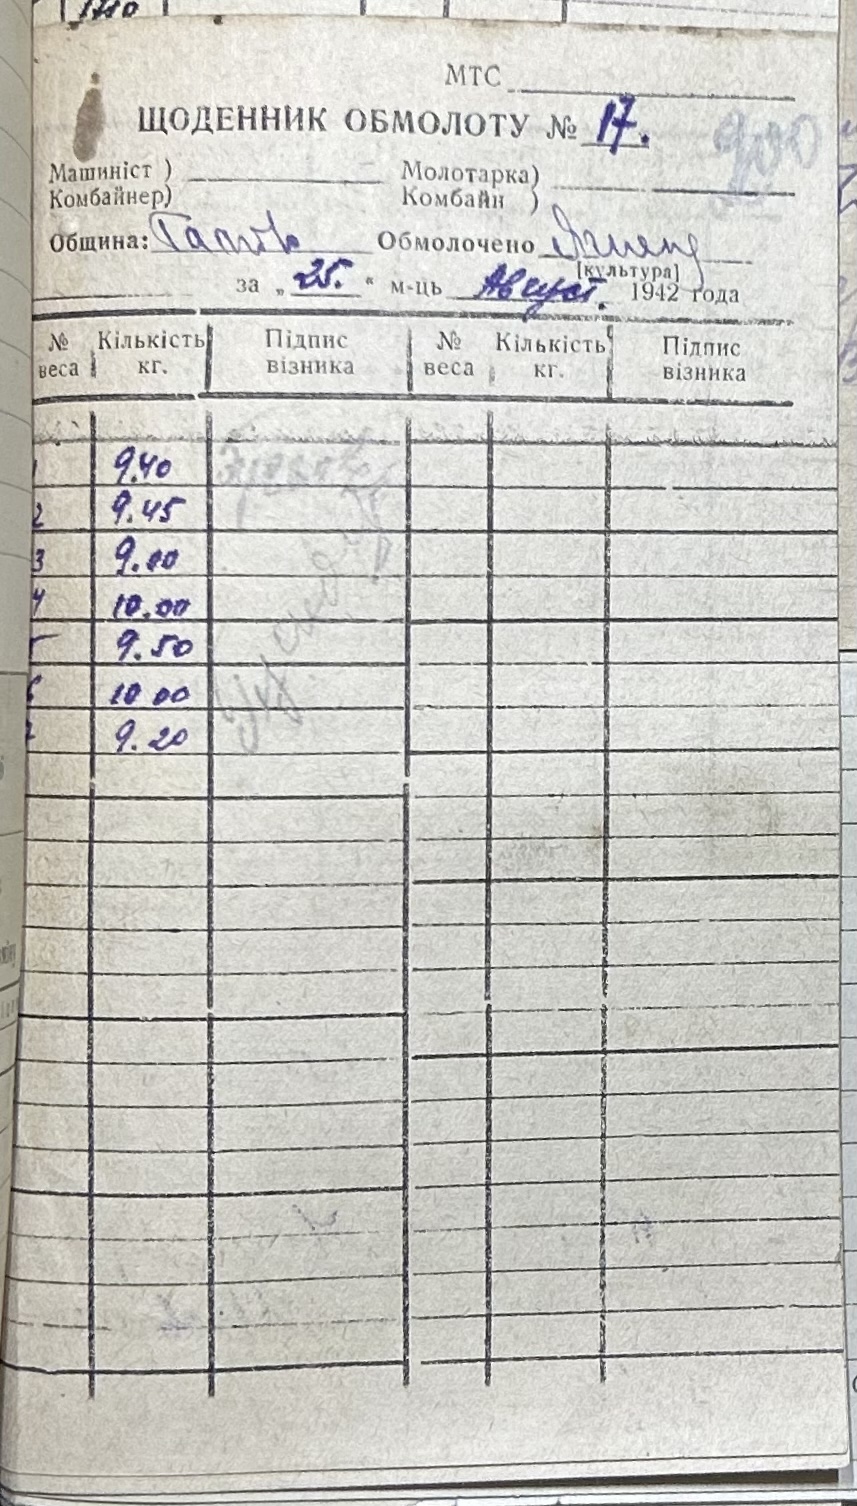 1710
МТС
ЩОДЕННИК ОБМОЛОТУ № 17.
Машиніст ) Молотарка)
Комбайнер) Комбайн )
Община: Обмолочено
[культура]
за „25.“ м-ць Август. 1942 года
№ веса Кількість кг. Підпис візника № веса Кількість кг. Підпис візника
1 9.40
2 9.45
3 9.00
4 10.00
5 9.50
6 10 00
7 9.20